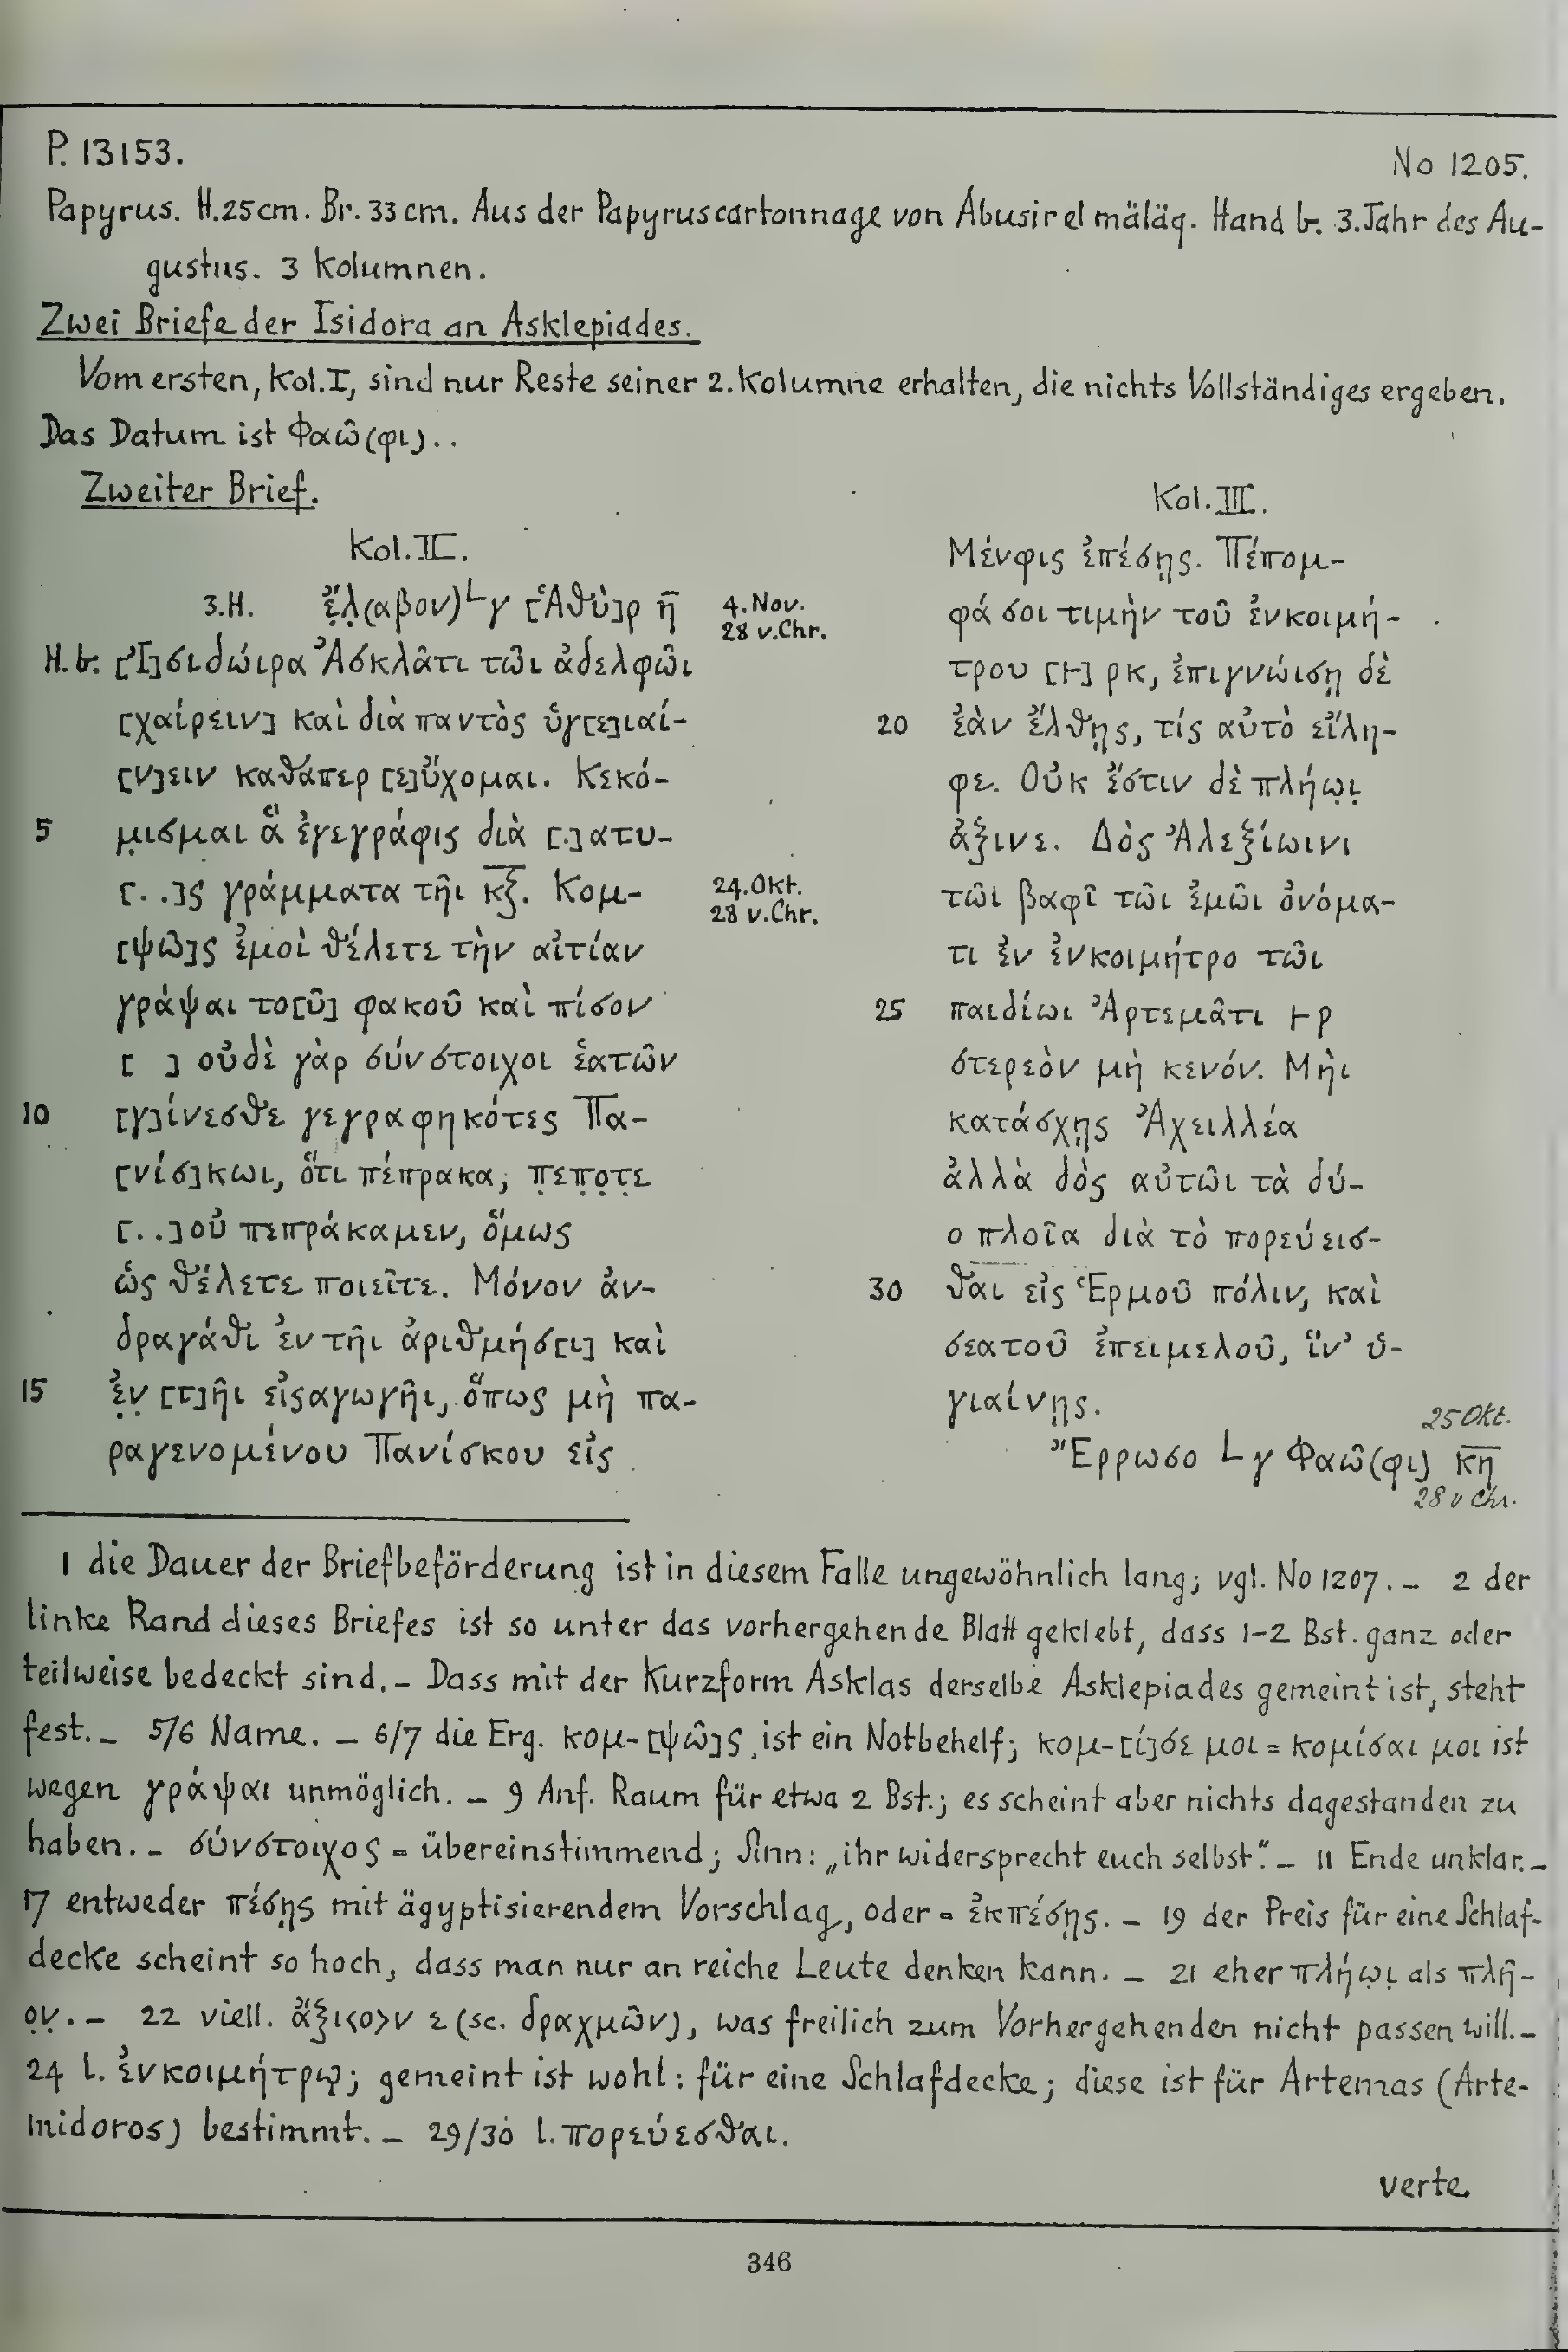 P. 13153.
No 1205.
Papyrus. H.25cm. Br. 33cm. Aus der Papyruscartonnage von Abusir el mäläq. Hand b. 3.Jahr des Au-
gustus. 3 Kolumnen.
Zwei Briefe der Isidora an Asklepiades.
Vom ersten, Kol.I, sind nur Reste seiner 2.Kolumne erhalten, die nichts Vollständiges ergeben.
Das Datum ist Φαῶ(φι)..
Zweiter Brief.
Kol.II.
3.H. ἔ̣λ̣(αβον) L γ [Ἁθὺ]ρ η̅ 4.Nov. 28 v.Chr.
H.b. [Ἰ]σιδώιρα Ἀσκλᾶτι τῶι ἀδελφῶι
[χαίρειν] καὶ διὰ παντὸς ὑγ[ε]ιαί-
[ν]ειν καθάπερ [ε]ὔχομαι. Κεκό-
5 μ̣ισμαι ἃ ἐγεγράφις διὰ [.]ατυ-
[..]ς γράμματα τῆι κ̅ξ̅. Κομ- 24.Okt. 28 v.Chr.
[ψῶ]ς ἐμοὶ θέλετε τὴν αἰτίαν
γράψαι το[ῦ] φακοῦ καὶ πίσον
[ ] οὐδὲ γὰρ σύνστοιχοι ἑατῶν
10 [γ]ίνεσθε γεγραφηκότες Πα-
[νίσ]κωι, ὅτι πέπρακα, π̣επ̣ο̣τ̣ε
[..]οὐ πεπράκαμεν, ὅμως
ὡς θέλετε ποιεῖτε. Μόνον ἀν-
δραγάθι ἐν τῆι ἀριθμήσ[ι] καὶ
15 ἐ̣ν̣ [τ]ῆι εἰσαγωγῆι, ὅπως μὴ πα-
ραγενομένου Πανίσκου εἰς
Kol.III.
Μένφις ἐπέσῃς. Πέπομ-
φά σοι τιμὴν τοῦ ἐνκοιμή-
τρου [𐅂] ρκ, ἐπιγνώισῃ δὲ
20 ἐὰν ἔλθῃς, τίς αὐτὸ εἴλη-
φε. Οὐκ ἔστιν δὲ πλήω̣ι̣
ἄξινε. Δὸς Ἀλεξίωινι
τῶι βαφῖ τῶι ἐμῶι ὀνόμα-
τι ἐν ἐνκοιμήτρο τῶι
25 παιδίωι Ἀρτεμᾶτι 𐅂 ρ
στερεὸν μὴ κενόν. Μὴι
κατάσχῃς Ἀχειλλέα
ἀλλὰ δὸς αὐτῶι τὰ δύ-
ο πλοῖα διὰ τὸ πορεύεισ-
30 θαι εἰς Ἑρμοῦ πόλιν, καὶ
σεατοῦ ἐπειμελοῦ, ἵν’ ὑ-
γιαίνῃς.
Ἔρρωσο L γ Φαῶ(φι) κ̅η̅ 25 Okt. 28 v Chr.
1 die Dauer der Briefbeförderung ist in diesem Falle ungewöhnlich lang; vgl. No 1207. – 2 der
linke Rand dieses Briefes ist so unter das vorhergehende Blatt geklebt, dass 1-2 Bst. ganz oder
teilweise bedeckt sind. – Dass mit der Kurzform Asklas derselbe Asklepiades gemeint ist, steht
fest. – 5/6 Name. – 6/7 die Erg. κομ-[ψῶ]ς ist ein Notbehelf; κομ-[ί]σε μοι = κομίσαι μοι ist
wegen γράψαι unmöglich. – 9 Anf. Raum für etwa 2 Bst.; es scheint aber nichts dagestanden zu
haben. – σύνστοιχος = übereinstimmend; Sinn: „ihr widersprecht euch selbst“. – 11 Ende unklar. –
17 entweder πέσῃς mit ägyptisierendem Vorschlag, oder = ἐκπέσῃς. – 19 der Preis für eine Schlaf-
decke scheint so hoch, dass man nur an reiche Leute denken kann. – 21 eher πλήω̣ι̣ als πλῆ-
ο̣ν̣. – 22 viell. ἄξι<ο>ν ε (sc. δραχμῶν), was freilich zum Vorhergehenden nicht passen will. –
24 l. ἐνκοιμήτρῳ; gemeint ist wohl: für eine Schlafdecke; diese ist für Artemas (Arte-
midoros) bestimmt. – 29/30 l. πορεύεσθαι.
verte.
346